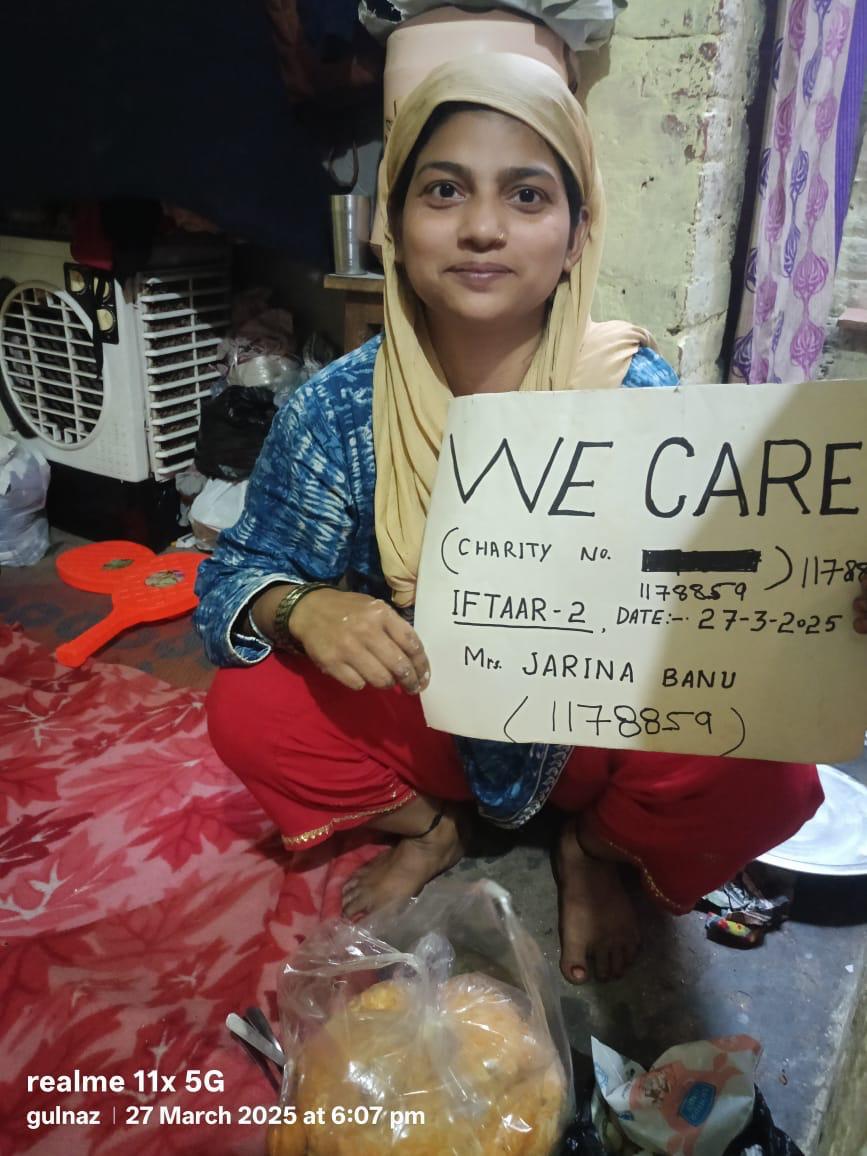 WE CARE
(CHARITY No. ) 11788
1178859
IFTAAR-2, DATE:-. 27-3-2025
Mrs. JARINA BANU
(1178859)
realme 11x 5G
gulnaz | 27 March 2025 at 6:07 pm